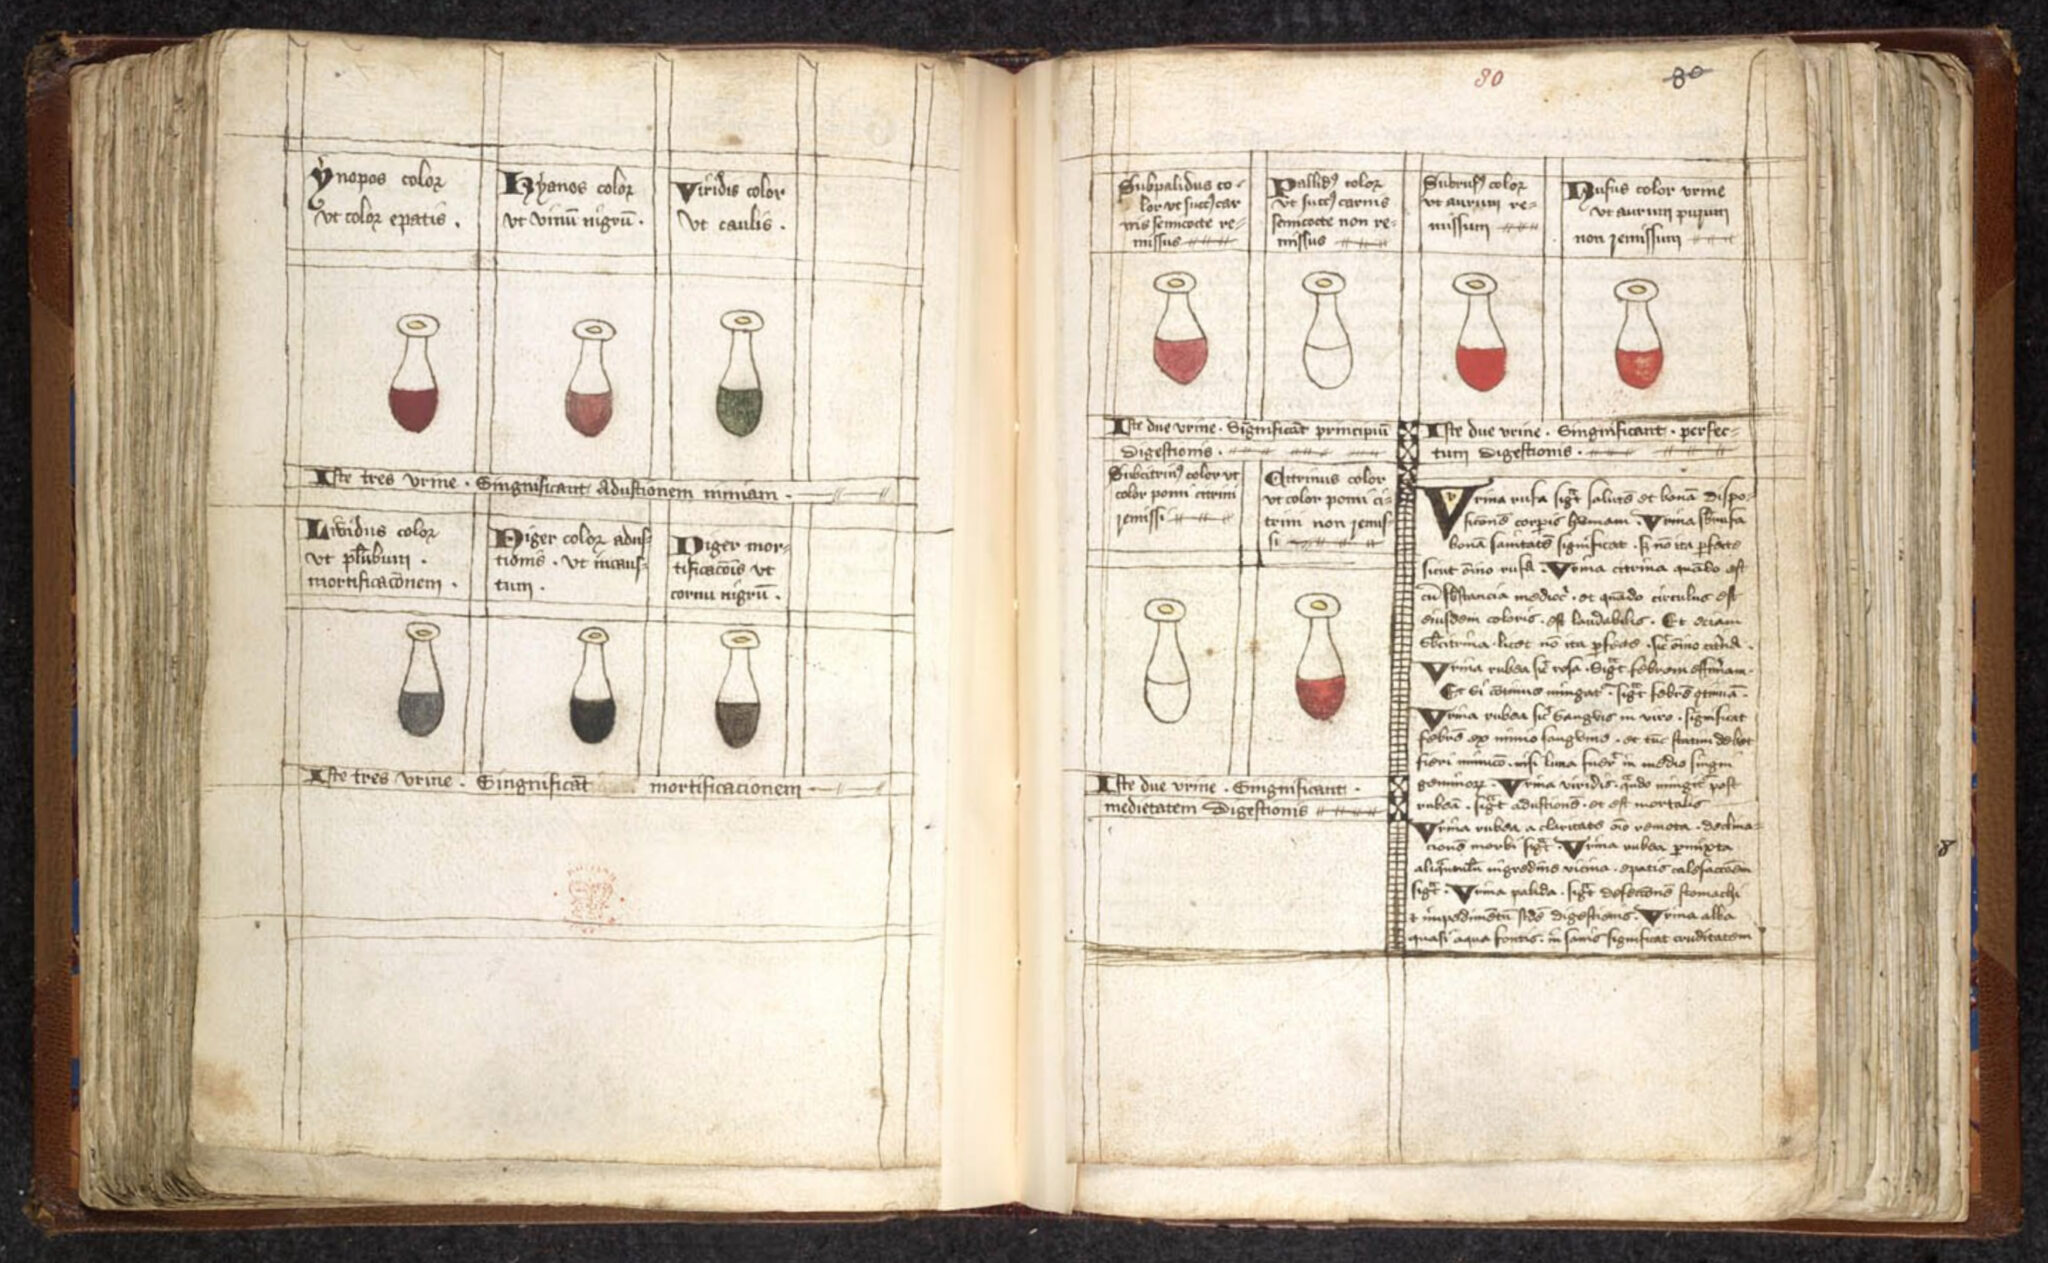 ynopos color
vt color epatis .
Kyanos color
vt vinū nigrū .
Viridis color
vt caulis .
Iste tres vrine . Singnificant adustionem nimiam .
Lividus color
vt plūbum .
mortificacōnem .
Niger color adus=
tionis . vt incaus=
tum .
Niger mor=
tificacōis vt
cornu nigrū .
Iste tres vrine . Singnificāt mortificacionem
80
80
Subpalidus co=
lor vt succ9 car
nis semicocte re=
missus
Pallid9 color
vt succ9 carnis
semicocte non re=
missus
Subruf9 color
vt aurum re=
missum
Rufus color vrine
vt aurum purum
non remissum
Iste due vrine . Significāt principiū
digestionis .
Iste due vrine . Singnificant . perfec=
tum digestionis .
Subcitrin9 color vt
color pomi citrini
remissi
Citrinus color
vt color pomi ci=
trini non remis=
si
Iste due vrine . Singnificant .
medietatem digestionis
Vrina rufa sigt salutē et bonā dispo=
sicionē corpis humani . Vrina subrufa
bonā sanitatē significat . s; nō ita pfecte
sicut oīno rufa . Vrina citrina quādo est
cū substancia mediocr . et quādo circulus est
eiusdem coloris . est laudabilis . Et eciam
subcitrina . licet nō ita pfecte . sic oīno citrīa .
Vrina rubea sic rosa . sigt febrem effimeram .
Et si cōtinue mingat . sigt febrē cōtinuā .
Vrina rubea sic sanguis in vitro . significat
febrē ex nimio sanguine . et tūc statim debet
fieri minucō . nisi luna fuerit in medio singni
geminor . Vrina viridis . quādo mingit post
rubeā . sigt adustionē . et est mortalis
Vrina rubea a claritate oīo remota . declina=
cionē morbi sigt . Vrina rubea pmixta
aliqūtulū nigredine vicina . epatis calefaccōem
sigt . Vrina palida . sigt defeccionē stomachi
t impedimētū scdē digestionis . Vrina alba
quasi aqua fontis . in sanis significat cruditatem